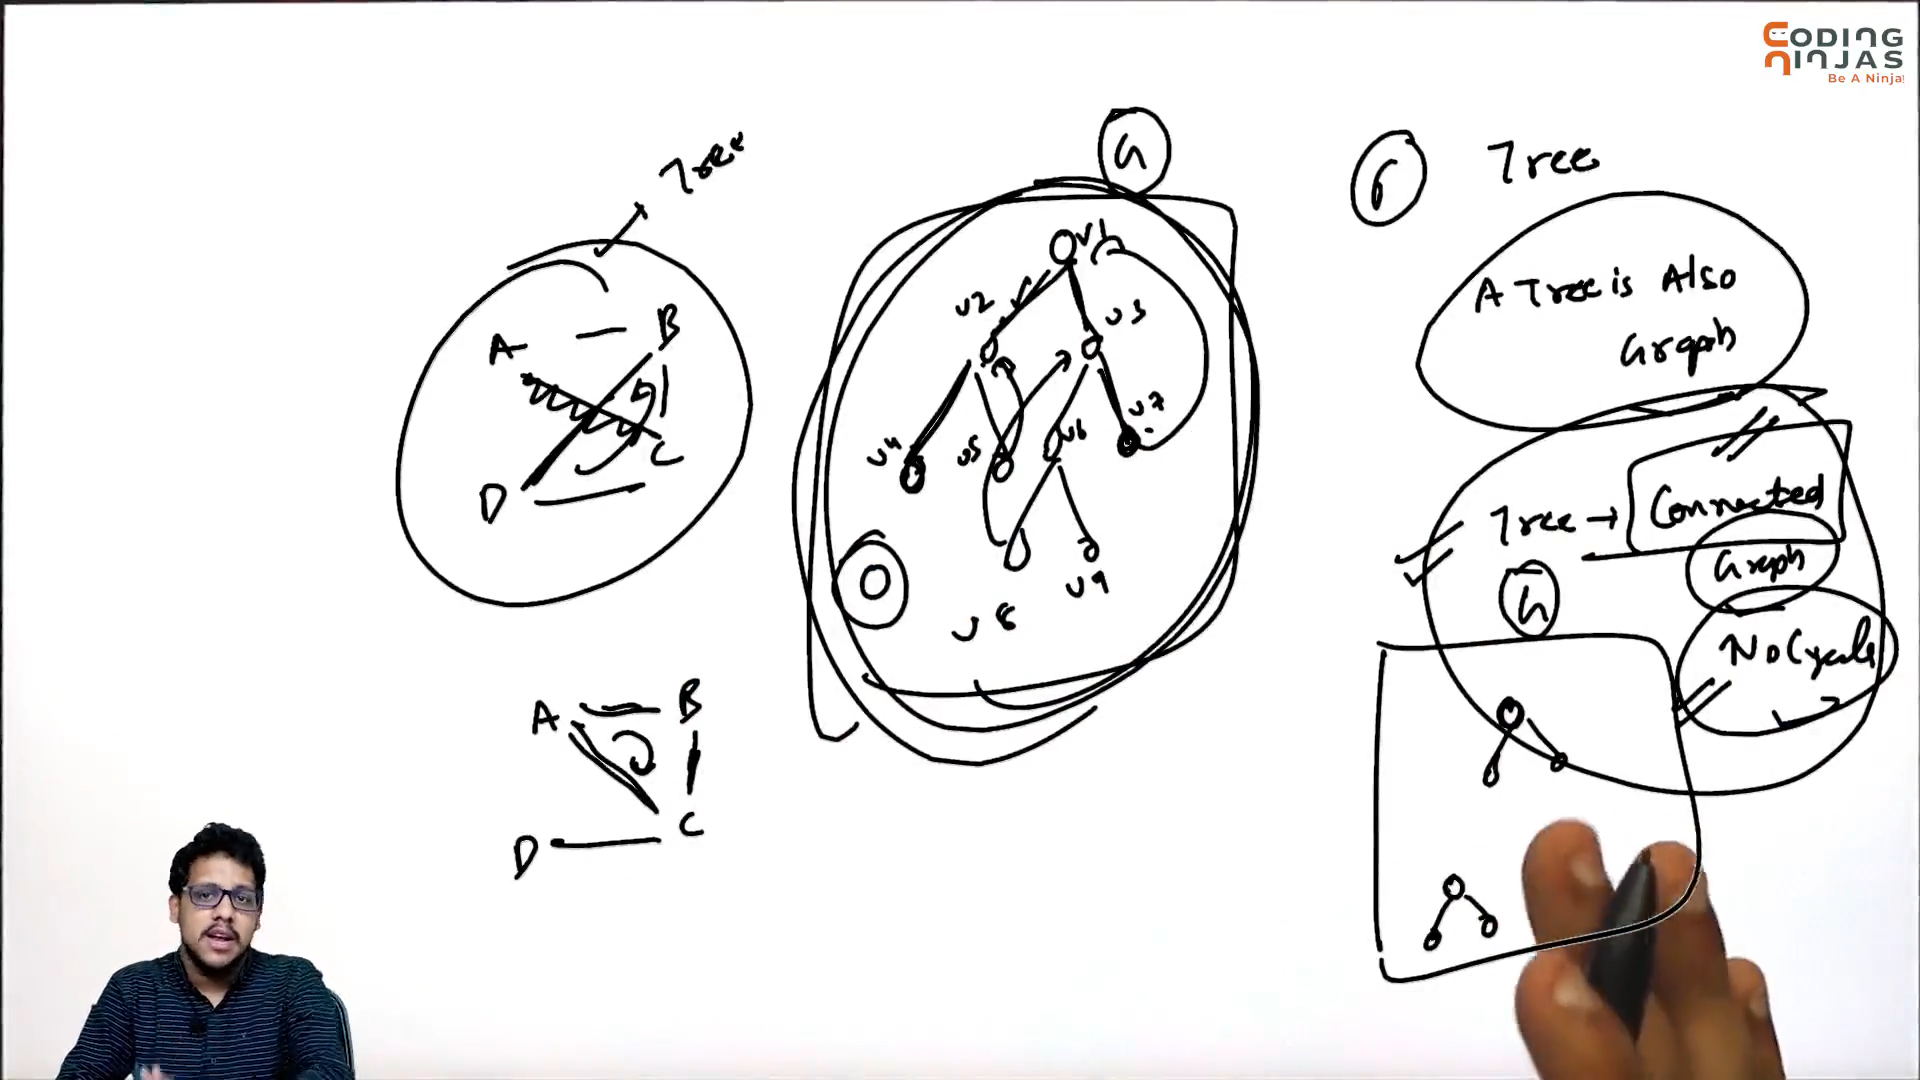 CODING
NINJAS
Be A Ninja!
Tree
A
B
C
D
A
B
C
D
G
v1
v2
v3
v4
v5
v6
v7
v8
v9
Tree
A Tree is Also
Graph
Tree → Connected
Graph
G
No Cycle